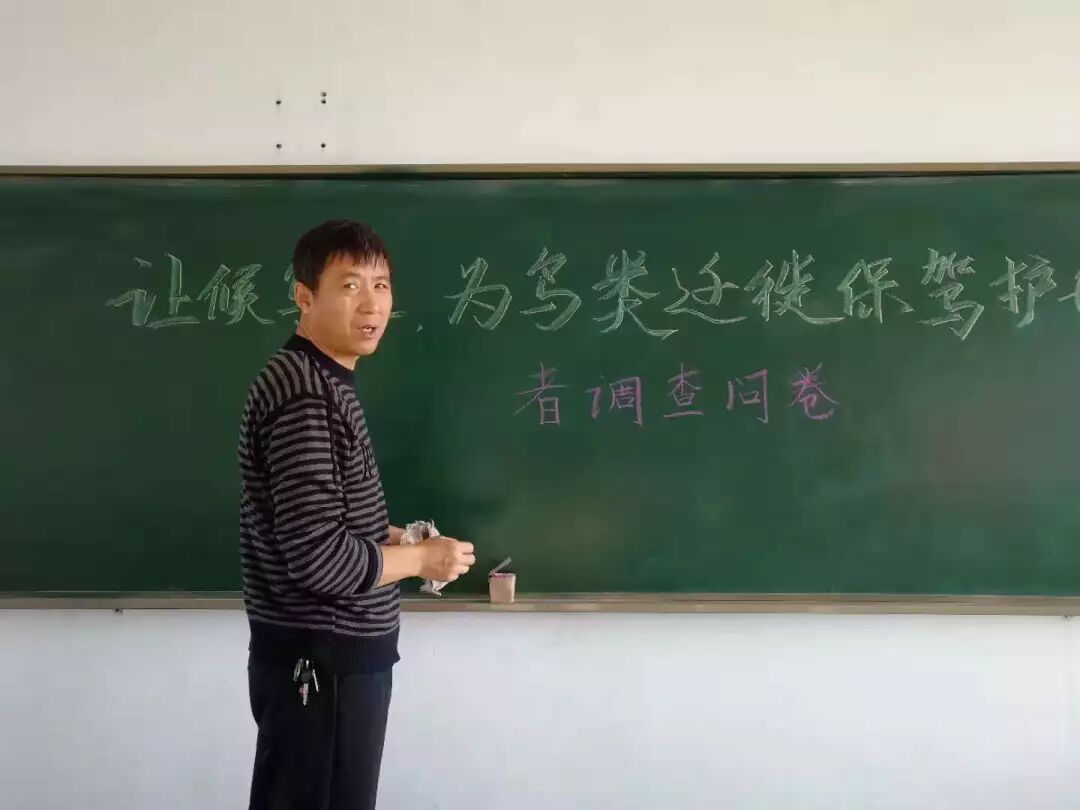 让候,为鸟类迁徙保驾护
者调查问卷